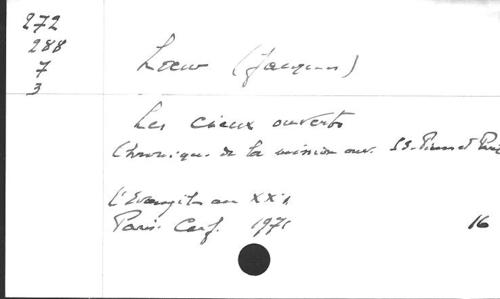 272
288
7
3
Loew (Jacques)
Les cieux ouverts
Chronique de la mission ouv. SS. Pierre et Paul
L'Evangile au XXe s
Paris Cerf. 1971
16